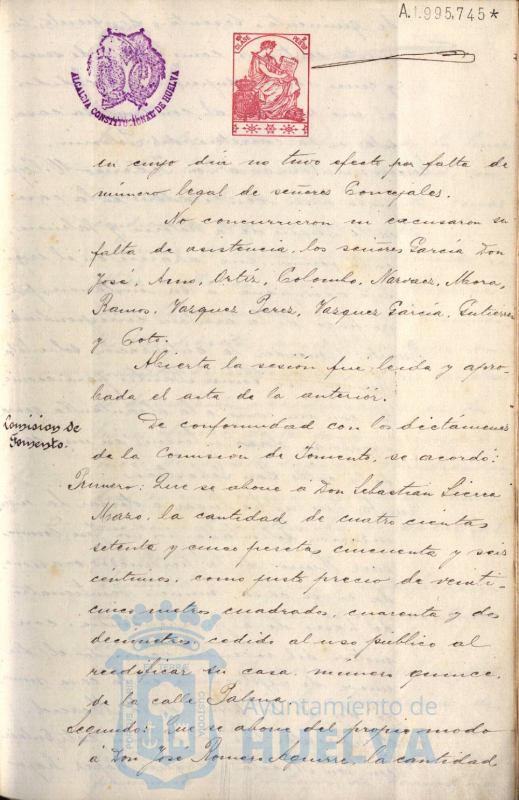 A.1.995,745*
ALCALDIA CONSTITUCIONAL DE HUELVA
en cuyo dia no tuvo efecto por falta de
número legal de señores Concejales.
No concurrieron ni excusaron su
falta de asistencia, los señores García Don
José, Amo, Ortíz, Colombo, Narvaez, Mora,
Ramos, Vazquez Perez, Vazquez García, Gutierrez
y Coto.
Abierta la sesión fué leida y apro-
bada el acta de la anterior.
Comision de
Fomento.
De conformidad con los dictámenes
de la Comisión de Fomento, se acordó:
Primero: Que se abone á Don Sebastian Sierra
Mazo, la cantidad de cuatro cientas
setenta y cinco pesetas cincuenta y seis
centimos, como justo precio de veinti-
cinco metros cuadrados, cuarenta y dos
decimetros, cedido al uso público al
reedificar su casa, número quince,
de la calle Palma.
Segundo: Que se abone del propio modo
á Don José Romero Aguirre, la cantidad
Ayuntamiento de
HUELVA